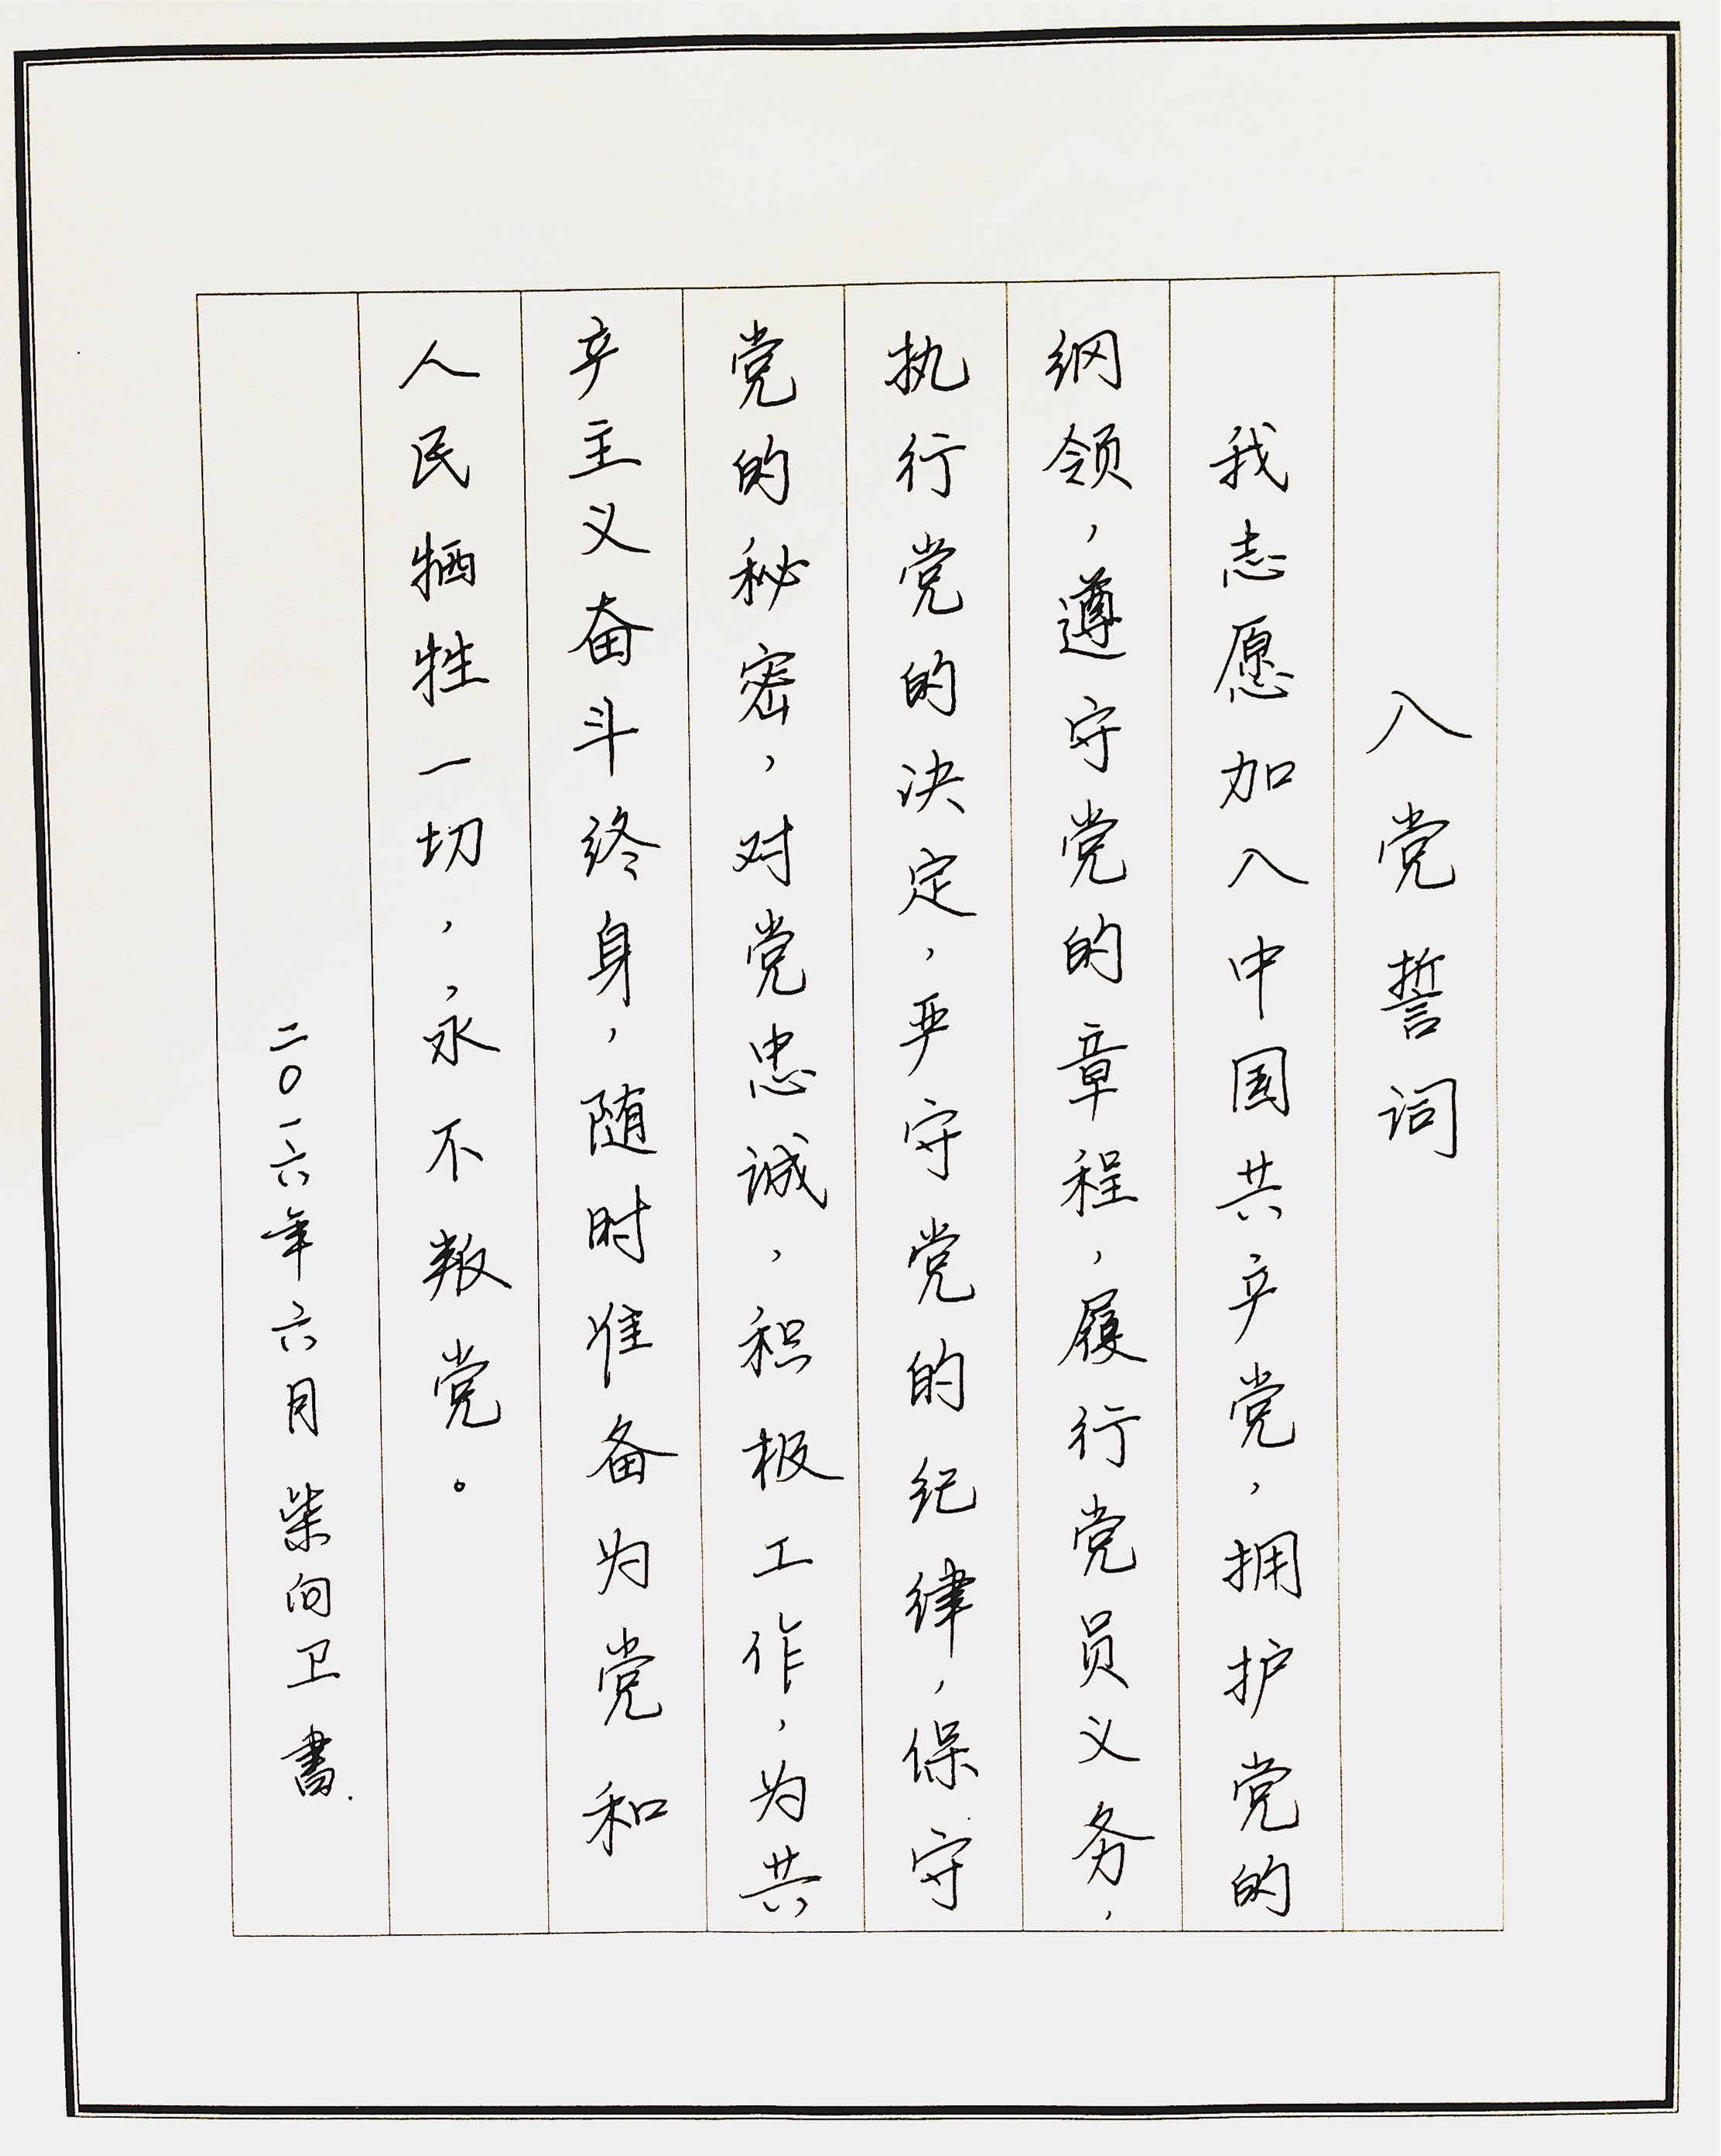 入党誓词
我志愿加入中国共产党，拥护党的
纲领，遵守党的章程，履行党员义务，
执行党的决定，严守党的纪律，保守
党的秘密，对党忠诚，积极工作，为共
产主义奋斗终身，随时准备为党和
人民牺牲一切，，永不叛党。
二〇一六年六月柴向卫書.